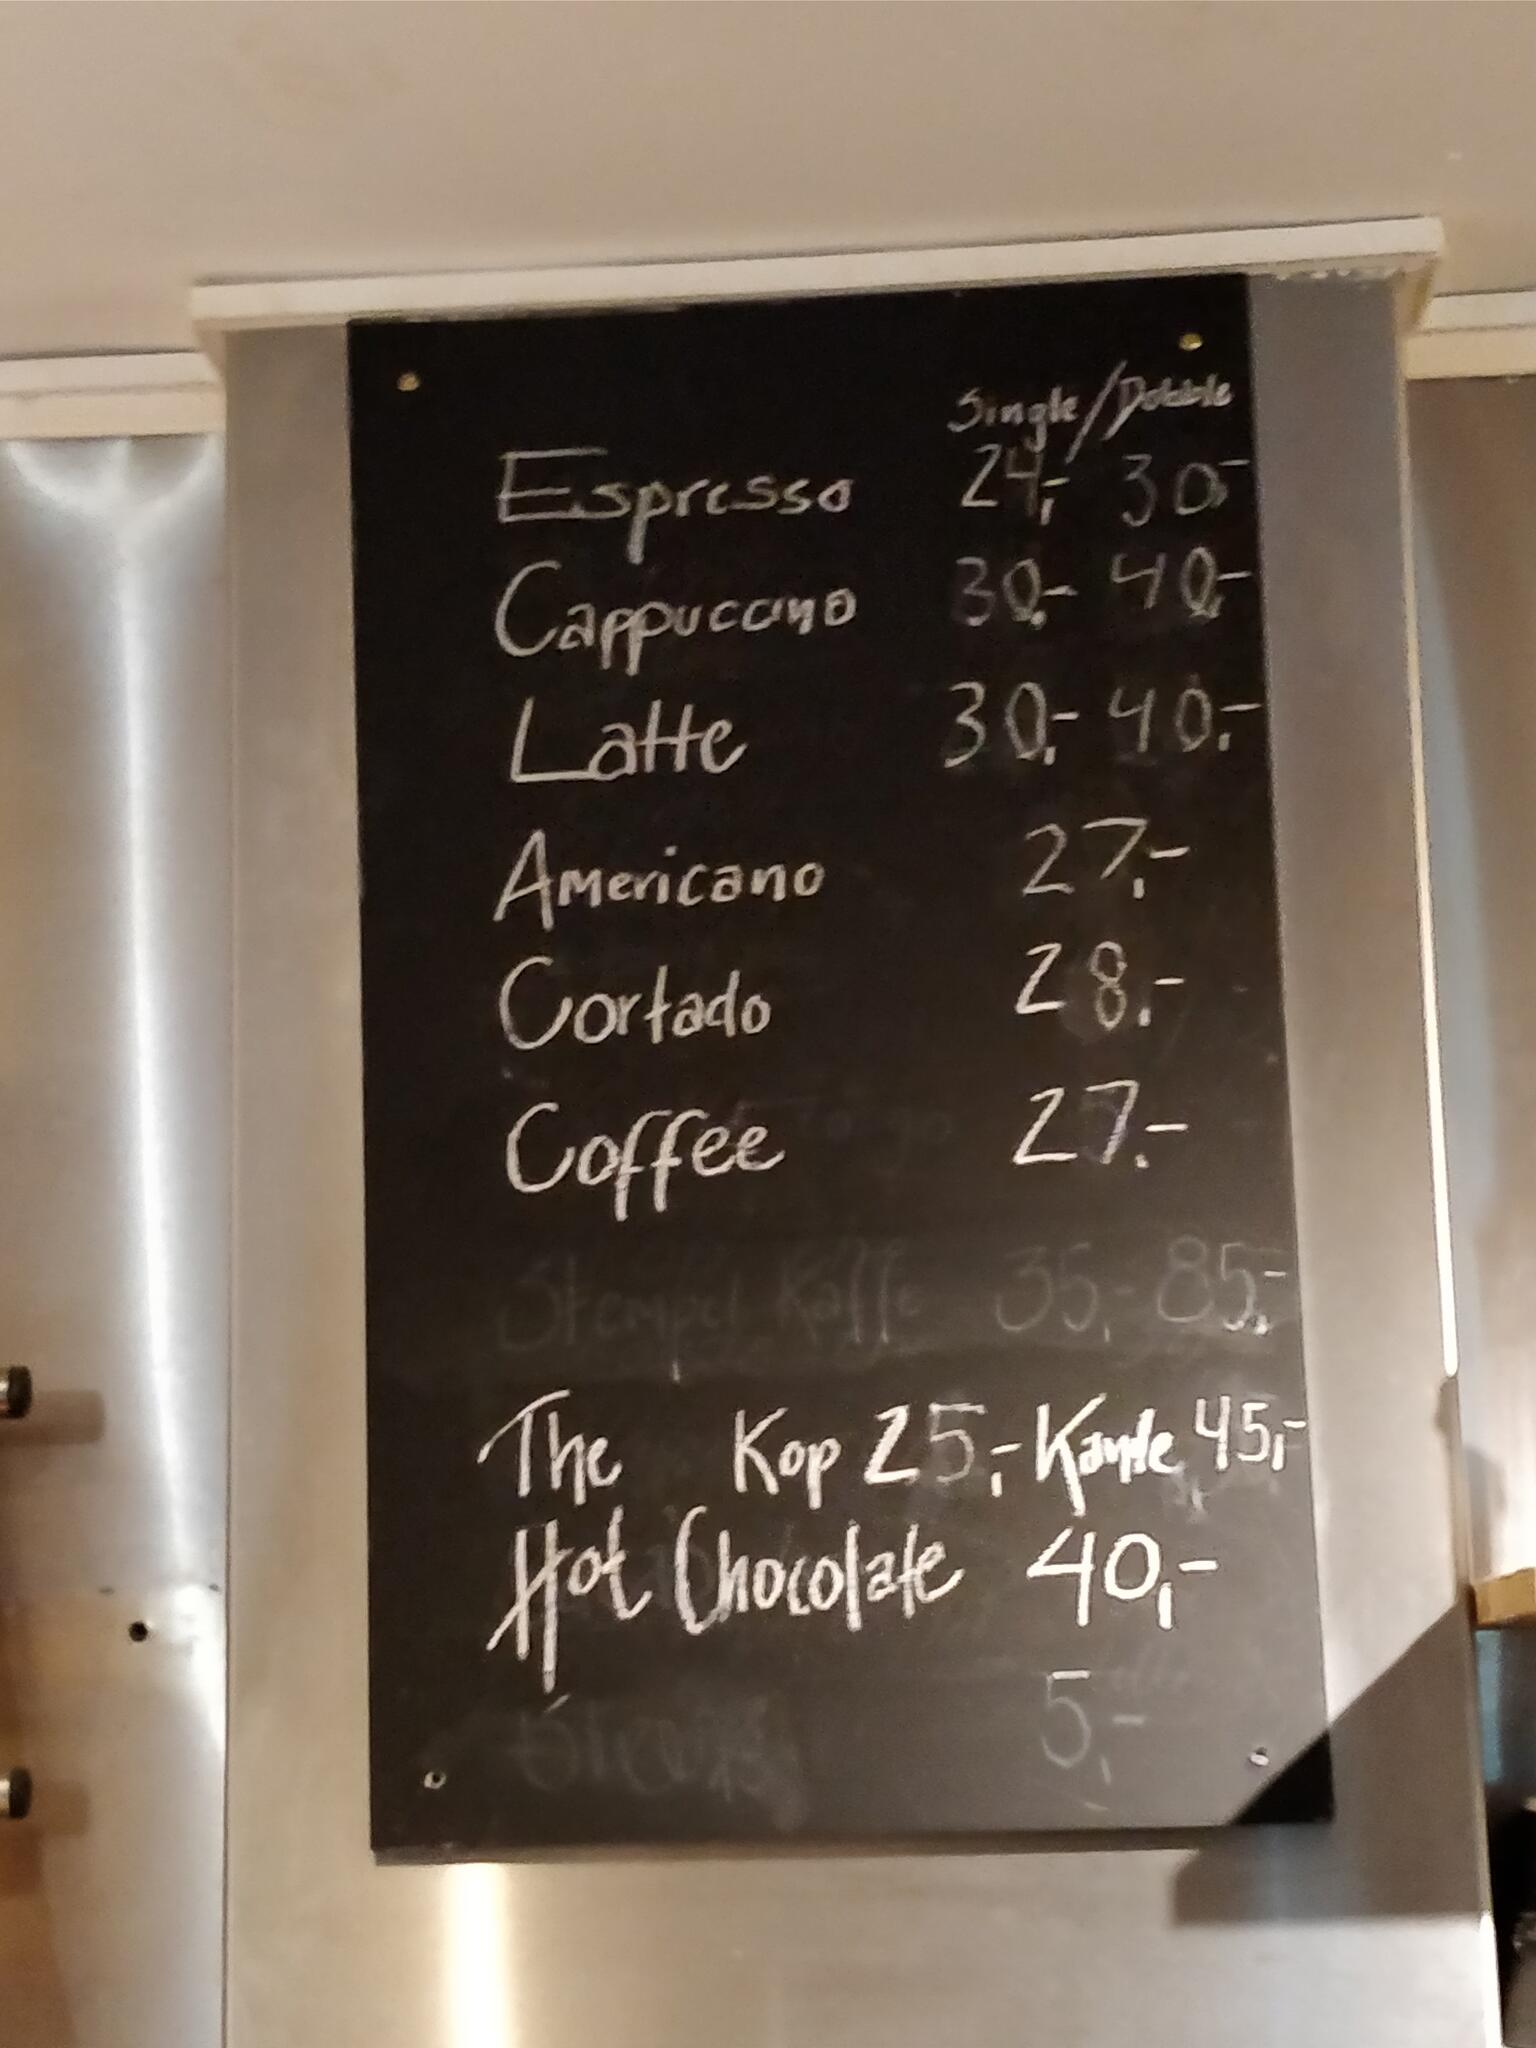 Single/Dobble
Espresso 24,- 30,-
Cappuccino 30,- 40,-
Latte 30,- 40,-
Americano 27,-
Cortado 28,-
Coffee 27,-
Stempel Kaffe 35,- 85,-
The Kop 25,- Kande 45,-
Hot Chocolate 40,-
5,-